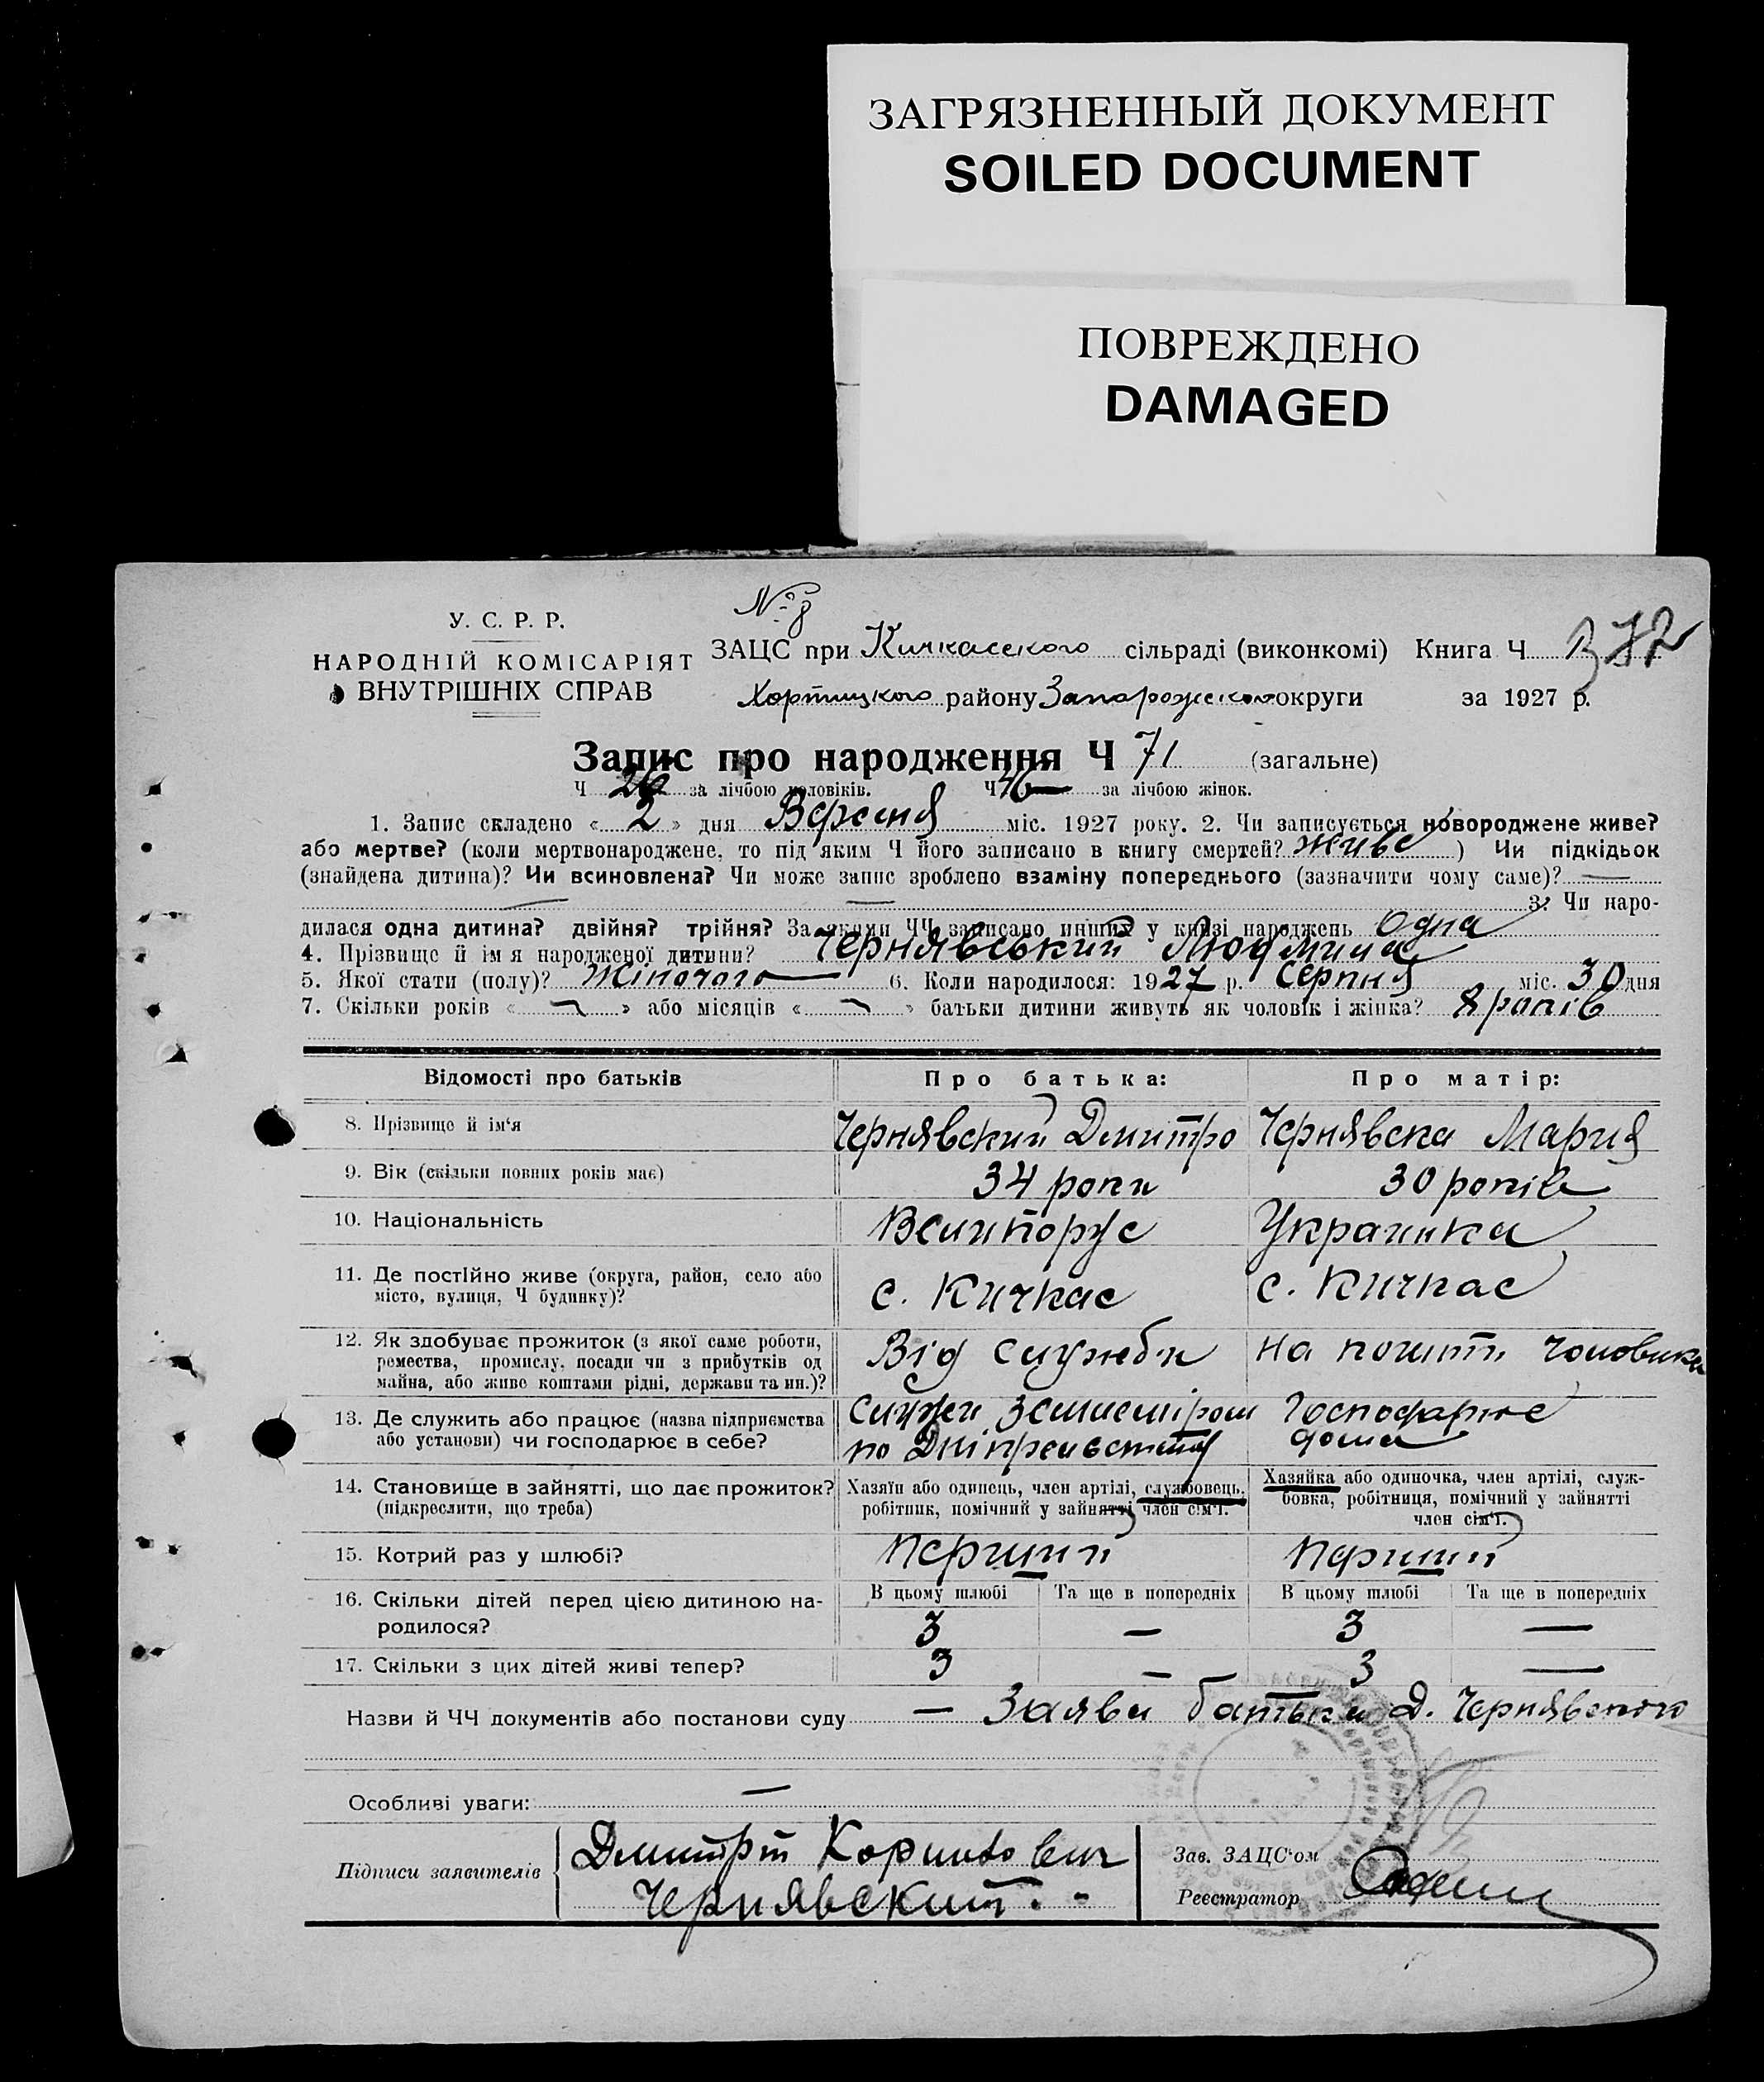 ЗАГРЯЗНЕННЫЙ ДОКУМЕНТ
SOILED DOCUMENT
ПОВРЕЖДЕНО
DAMAGED
У. С. Р. Р.
НАРОДНІЙ КОМІСАРІЯТ
ВНУТРІШНІХ СПРАВ
ЗАЦС при Кичкаського сільраді (виконкомі) Книга Ч
Хортицкого району Запорожского округи за 1927 р.
Запис про народження Ч 71 (загальне)
Ч 26 за лічбою чоловіків. Ч 46 за лічбою жінок.
1. Запис складено « 2 » дня Вересня міс. 1927 року. 2. Чи записується новороджене живе?
або мертве? (коли мертвонароджене, то під яким Ч його записано в книгу смертей? живе ) Чи підкідьок
(знайдена дитина)? Чи всиновлена? Чи може запис зроблено взаміну попереднього (зазначити чому саме)? —
— — 3. Чи наро-
дилася одна дитина? двійня? трійня? За якими ЧЧ записано инших у книзі народжень Одна
4. Прізвище й ім я народженої дитини? Чернявський Людмила
5. Якої стати (полу)? Жіночого 6. Коли народилося: 1927 р. Серпня міс. 30 дня
7. Скільки років « — » або місяців « — » батьки дитини живуть як чоловік і жінка? 8 років
Відомості про батьків Про батька: Про матір:
8. Прізвище й ім'я Чернявский Дмитро Чернявска Мария
9. Вік (скільки повних років має) 34 роки 30 років
10. Національність Великорус Украинка
11. Де постійно живе (округа, район, село або
місто, вулиця, Ч будинку)? с. Кичкас с. Кичкас
12. Як здобуває прожиток (з якої саме роботи,
ремества, промислу, посади чи з прибутків од
майна, або живе коштами рідні, держави та ин.)? Від служби на кошти чоловика
13. Де служить або працює (назва підприємства
або установи) чи господарює в себе? Служе землеміром
по Господарює
дома
14. Становище в зайнятті, що дає прожиток?
(підкреслити, що треба)
Хазяїн або одинець, член артілі, службовець,
робітник, помічний у зайнятті член сім'ї.
Хазяйка або одиночка, член артілі, служ-
бовка, робітниця, помічний у зайнятті
член сім'ї.
15. Котрий раз у шлюбі? Перший Перший
16. Скільки дітей перед цією дитиною на-
родилося?
В цьому шлюбі Та ще в попередніх В цьому шлюбі Та ще в попередніх
3 — 3 —
17. Скільки з цих дітей живі тепер? 3 — 3 —
Назви й ЧЧ документів або постанови суду — Заява батька Д. Чернявского
Особливі уваги: —
Підписи заявителів Дмитрій
Чернявский.
Зав. ЗАЦС'ом
Реєстратор